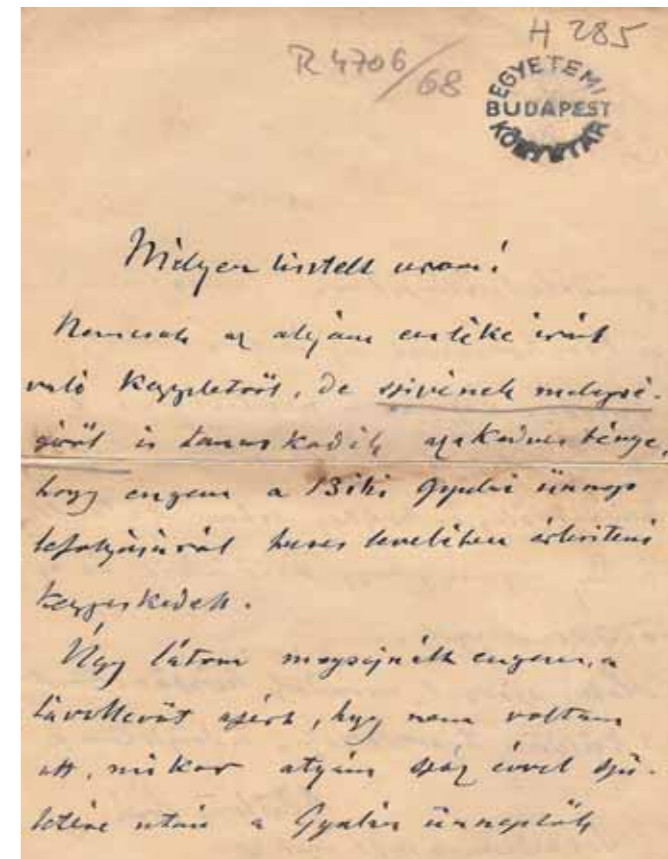 H 285
R 4706/68
EGYETEMI
BUDAPEST
KÖNYVTÁR
Mélyen tisztelt uram!
Nemcsak az atyám emléke iránt
való kegyeletről, de szivének melegsé-
géről is tanuskodik az a kedves ténye,
hogy engem a 13iki Gyulai ünnep
lefolyásáról becses levelében értesíteni
kegyeskedett.
Úgy látom megsajnált engem, a
távollevőt azért, hogy nem voltam
ott, mikor atyám száz évvel szü-
letése után a Gyulai ünneplők